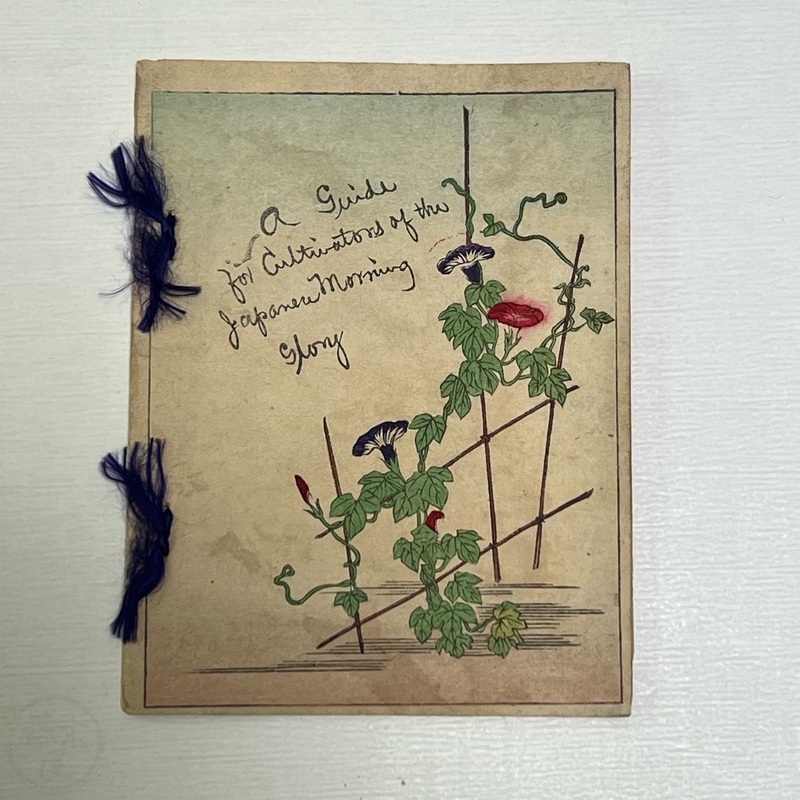 A Guide
for Cultivators of the
Japanese Morning
Glory